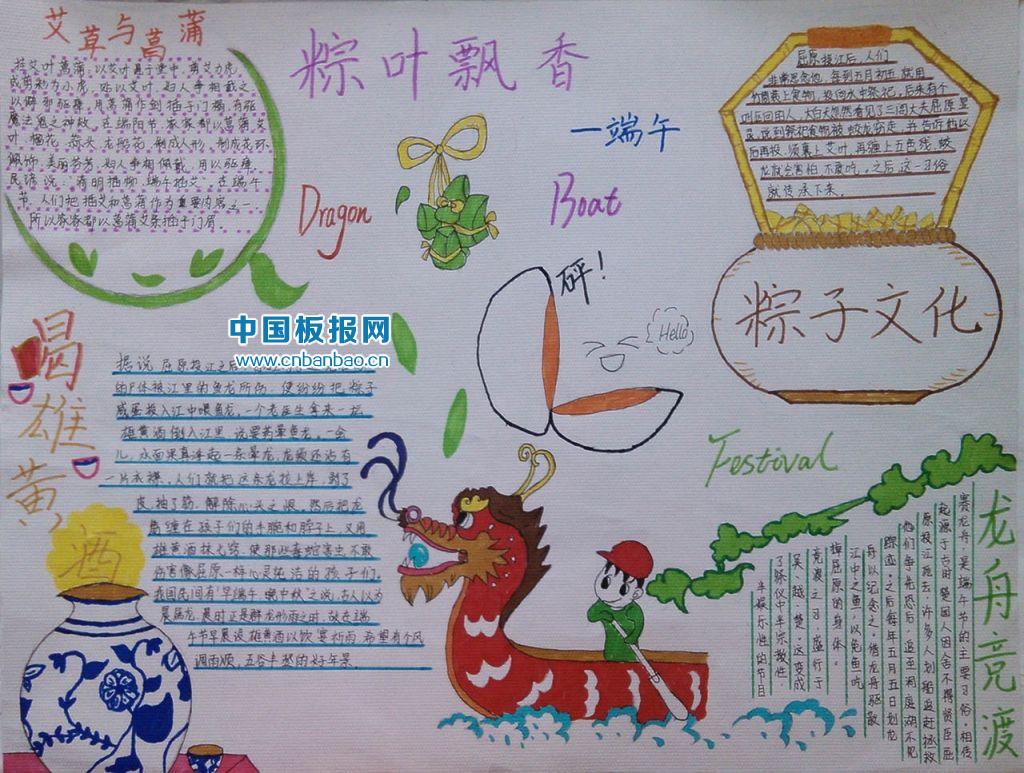 艾草与菖蒲
挂艾叶菖蒲:以艾叶悬于堂中,剪艾为虎,
或剪彩为小虎,贴以艾叶,妇人争相戴之,
以僻邪驱瘴。用菖蒲作剑插于门楣,有驱
魔法鬼之神效。在端阳节,家家都以菖蒲、艾
叶、榴花、蒜头、龙船花,制成人形,制成花环、
佩饰,美丽芬芳,妇人争相佩戴,用以驱瘴。
民谚说:清明插柳,端午插艾。在端午
节,人们把插艾和菖蒲作为重要内容之一,
所以家家都以菖蒲艾条插于门眉。
粽叶飘香
一端午
Dragon
Boat
屈原投江后,人们
非常思念他,每到五月初五,就用
竹筒装上食物,投向水中祭祀,后来有个
叫区回的人,大白天忽然看见了三闾大夫屈原显
灵,说到祭祀食物被蛟龙窃走,并告诉他以
后再投,须裹上艾叶,再缠上五色线,蛟
龙就会害怕不敢吃。之后这一习俗
就传承下来。
粽子文化
砰!
Hello
中国板报网
www.cnbanbao.cn
喝雄黄酒
据说屈原投江之后
的尸体被江里的鱼龙所伤,便纷纷把粽子
咸蛋投入江中喂鱼龙。一个老医生拿来一坛
雄黄酒倒入江里,说要药晕鱼龙。一会
儿,水面果真浮起一条晕龙,龙须还沾有
一片衣襟,人们就把这条龙拉上岸,剥了
皮,抽了筋,解除心头之恨。然后把龙
筋缠在孩子们的手腕和脖子上,又用
雄黄酒抹七窍,使那些毒蛇害虫不敢
伤害像屈原一样心灵纯洁的孩子们。
我国民间有“早端午,晚中秋”之说,古人以为
晨属龙,晨时正是群龙行雨之时,故在端
午节早晨设雄黄酒以饮宴祈雨,希望有个风
调雨顺,五谷丰登的好年景。
Festival
龙舟竞渡
赛龙舟,是端午节的主要习俗。相传
起源于古时楚国人因舍不得贤臣屈
原投江死去,许多人划船追赶拯救
他们争先恐后,追至洞庭湖不见
踪迹。之后每年五月五日划龙
舟以纪念之。借龙舟驱散
江中之鱼,以免鱼吃
掉屈原的身体。
竞渡之习,盛行于
吴、越、楚。这变成
了祭仪中半宗教性、
半娱乐性的节目